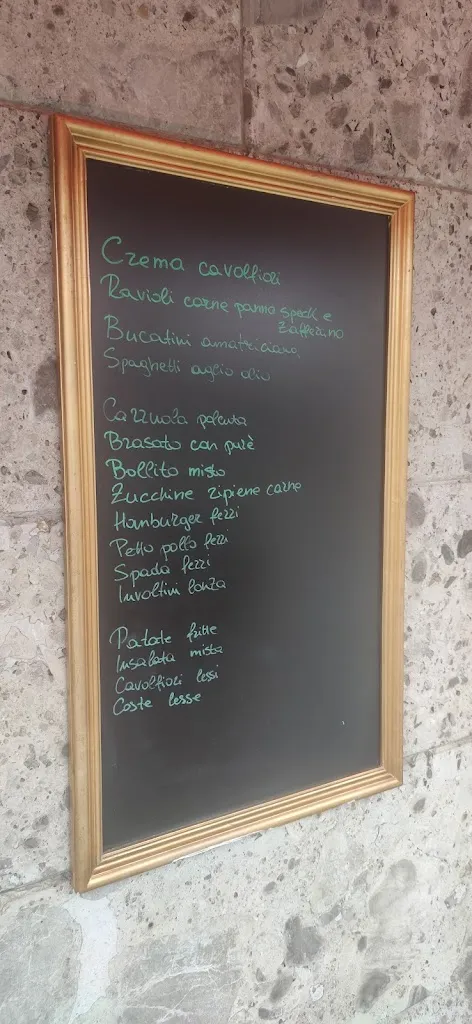 Crema cavolfiori
Ravioli carne panna speck e
zafferano
Bucatini amatriciana
Spaghetti aglio olio
Cazzuola polenta
Brasato con purè
Bollito misto
Zucchine ripiene carne
Hamburger ferri
Petto pollo ferri
Spada ferri
Involtini lonza
Patate fritte
Insalata mista
Cavolfiori lessi
Coste lesse